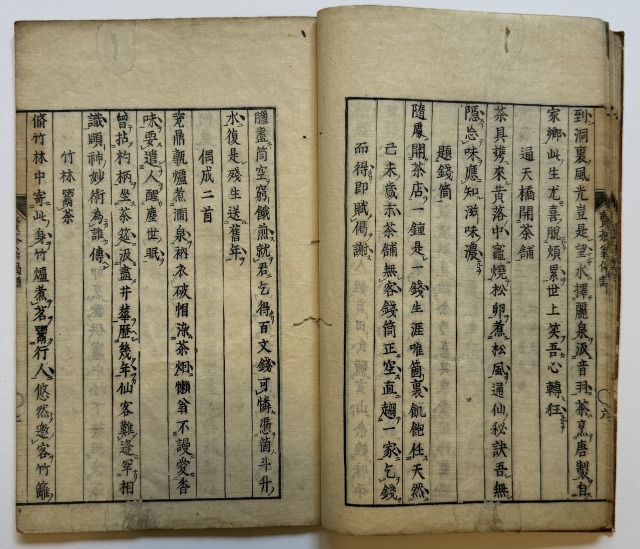 到洞裏風光豈是望水擇麗泉汲音羽茶烹唐製自
家鄉此生尤喜脫煩累世上笑吾心轉狂
通天橋開茶舖
茶具携來黃落中竈燒松卵煮松風通仙秘訣吾無
隱怎味應知滋味濃
題錢筒
隨處開茶店一鐘是一錢生涯唯箇裏飢飽任天然
己未歲赤茶舖無客錢筒正空直趨一家乞錢
而得即賦偈謝
膽盡筒空窮餓煎就君乞得百文錢可憐憑箇斗升
水復是殘生送舊年
偶成二首
瓷鼎瓢爐煮澗泉衲衣破帽染茶烟懶翁不謾愛香
味要遣人醒塵世眠
曾拈杓柄坐茶筵汲盡井華歷幾年仙客難逢罕相
識頤神妙術為誰傳
竹林鬻茶
脩竹林中寄此身竹爐煮茗鬻行人悠然邀客竹籬